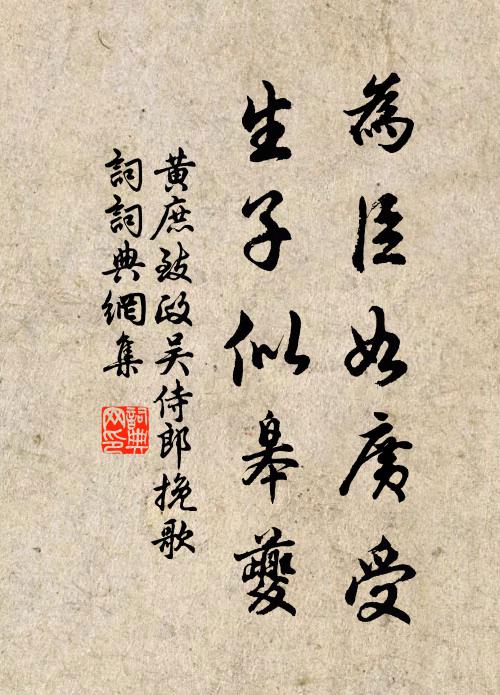 為臣如廣受
生子似皋夔
黄庶致政吴侍郎挽歌
詞詞典網集
詞典网印